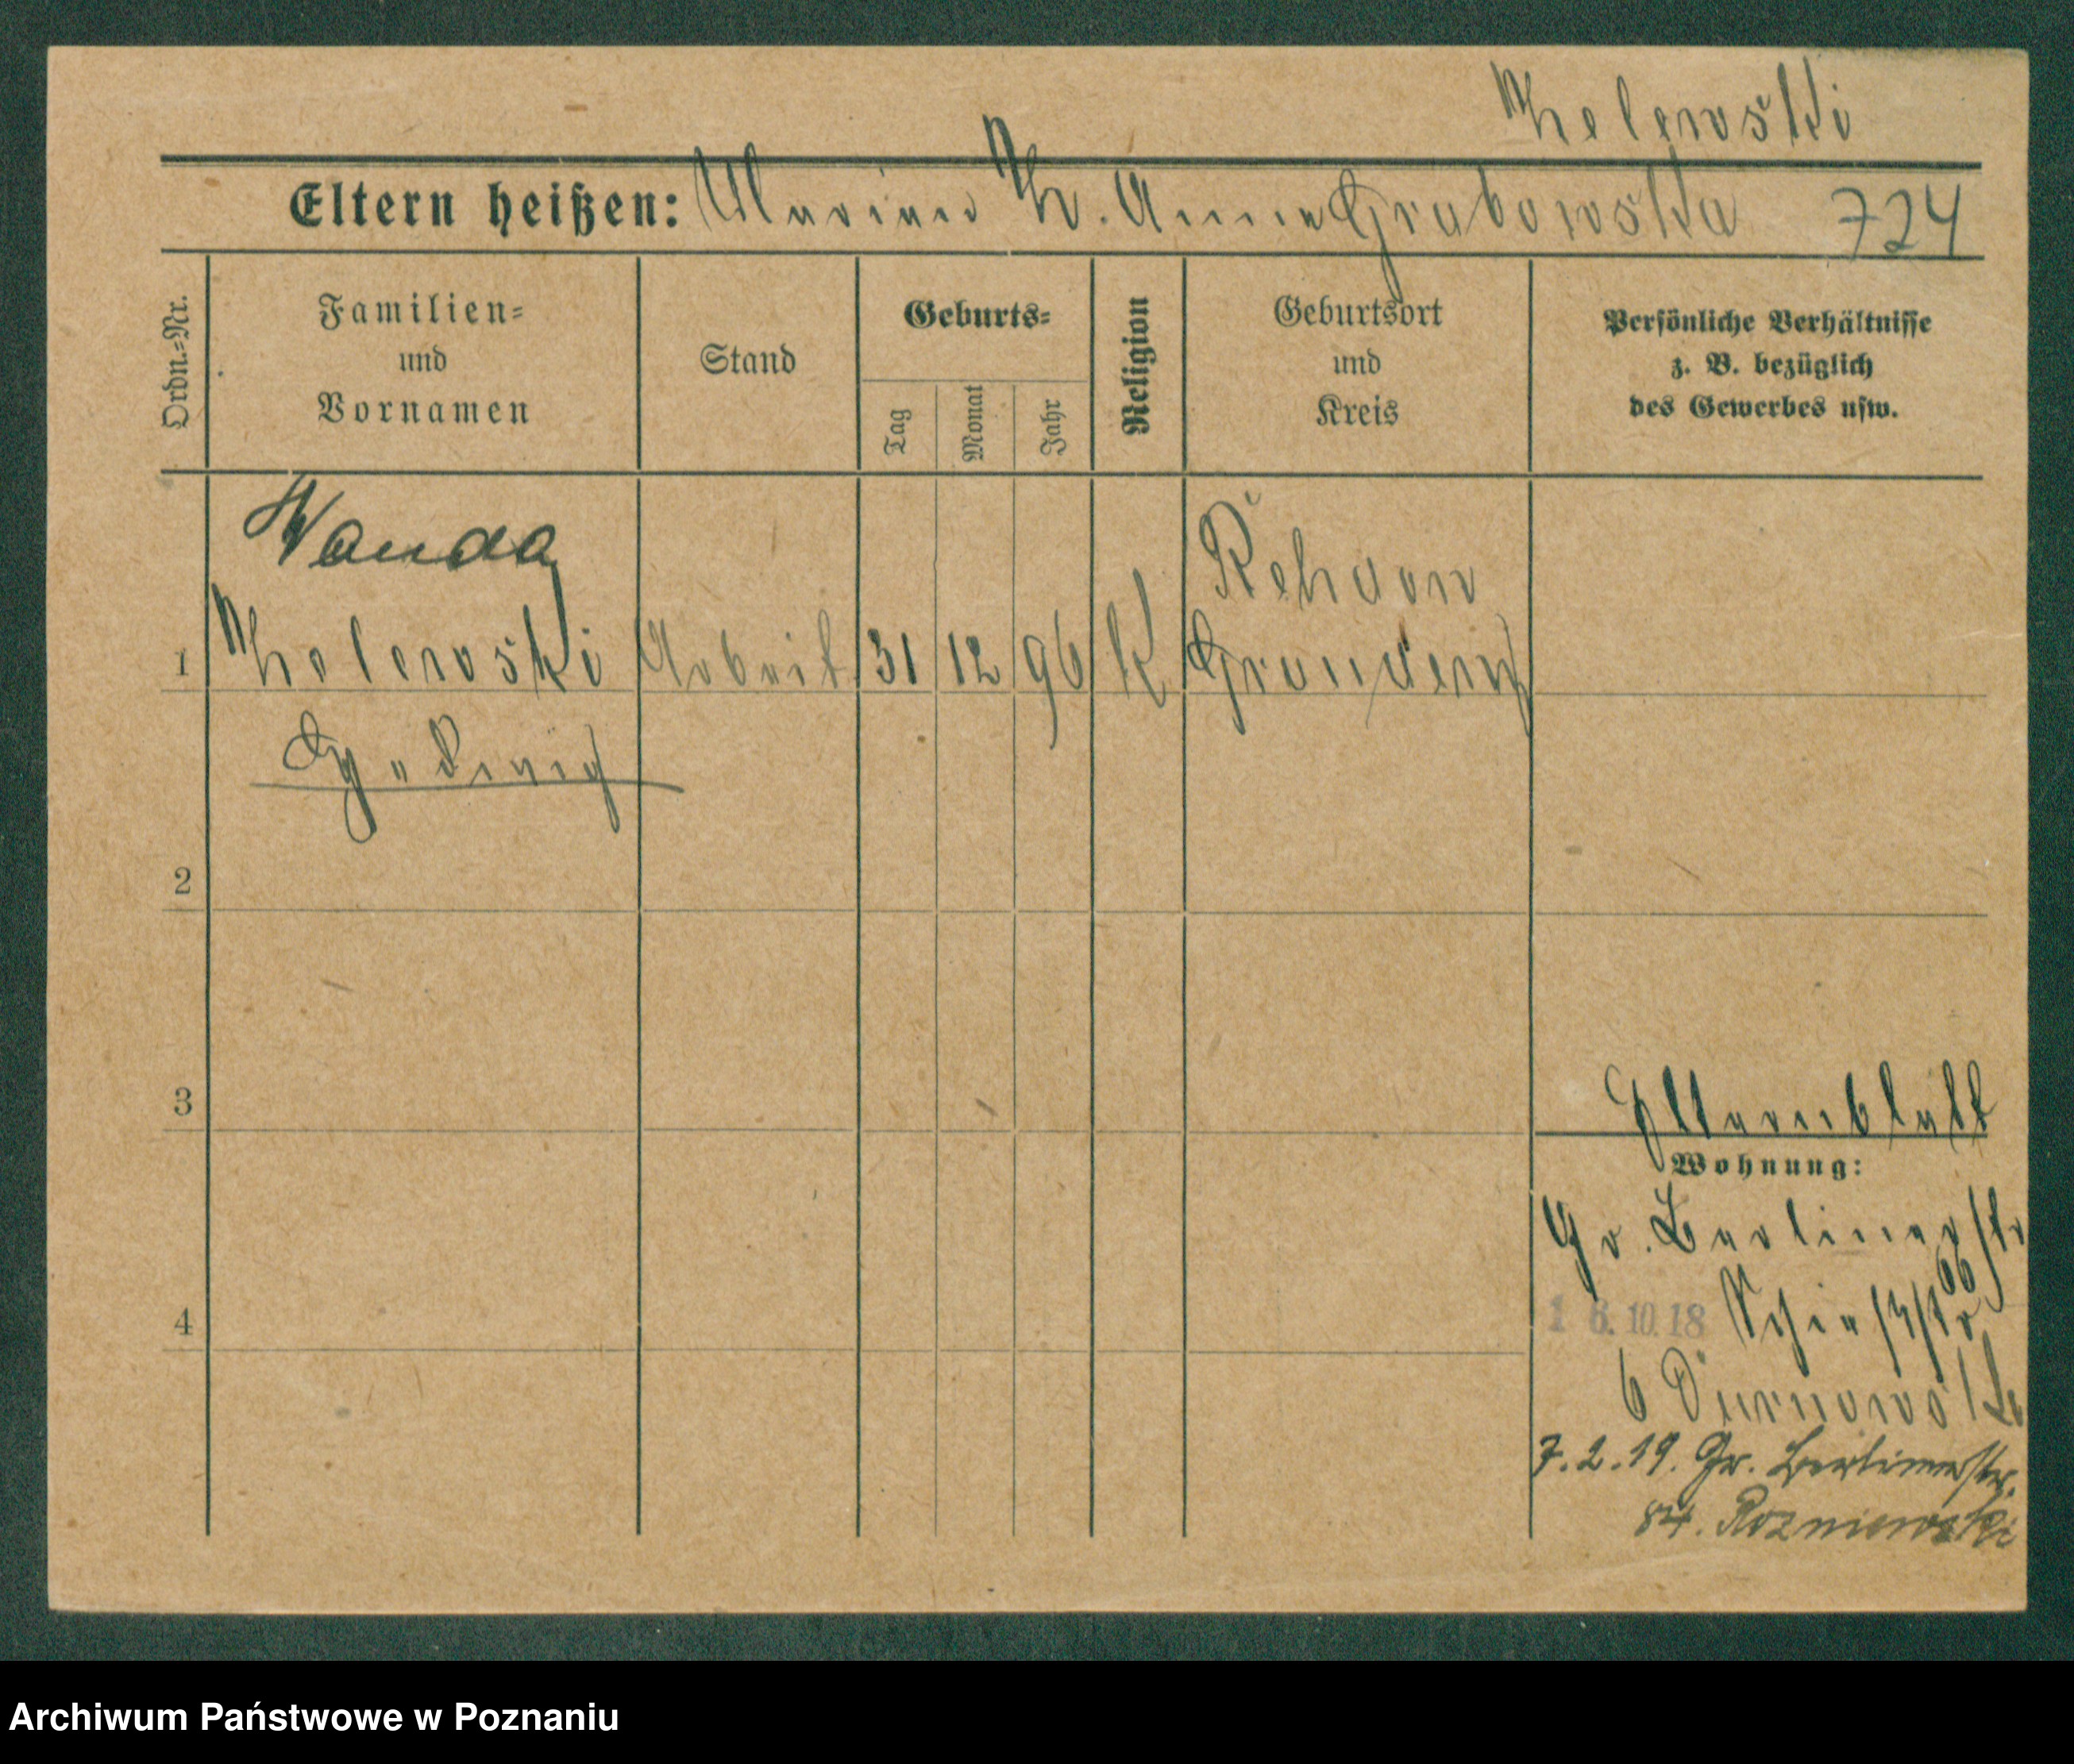 Eltern heißen: Marian Anna Grabowska 724
Ordn.-Nr.
Familien-
und
Vornamen
Stand
Geburts-
Tag
Monat
Jahr
Religion
Geburtsort
und
Kreis
Persönliche Verhältnisse
z. B. bezüglich
des Gewerbes usw.
Wanda
Rehden
1 Arbeit 31 12 96 K Graudenz
Hedwig
2
3
Elternblatt
Wohnung:
Gr. Berlinerstr
66
4
16.10.18 Schießstr
6
7.2.19. Gr. Berlinerstr.
84. Rozniewski
Archiwum Państwowe w Poznaniu